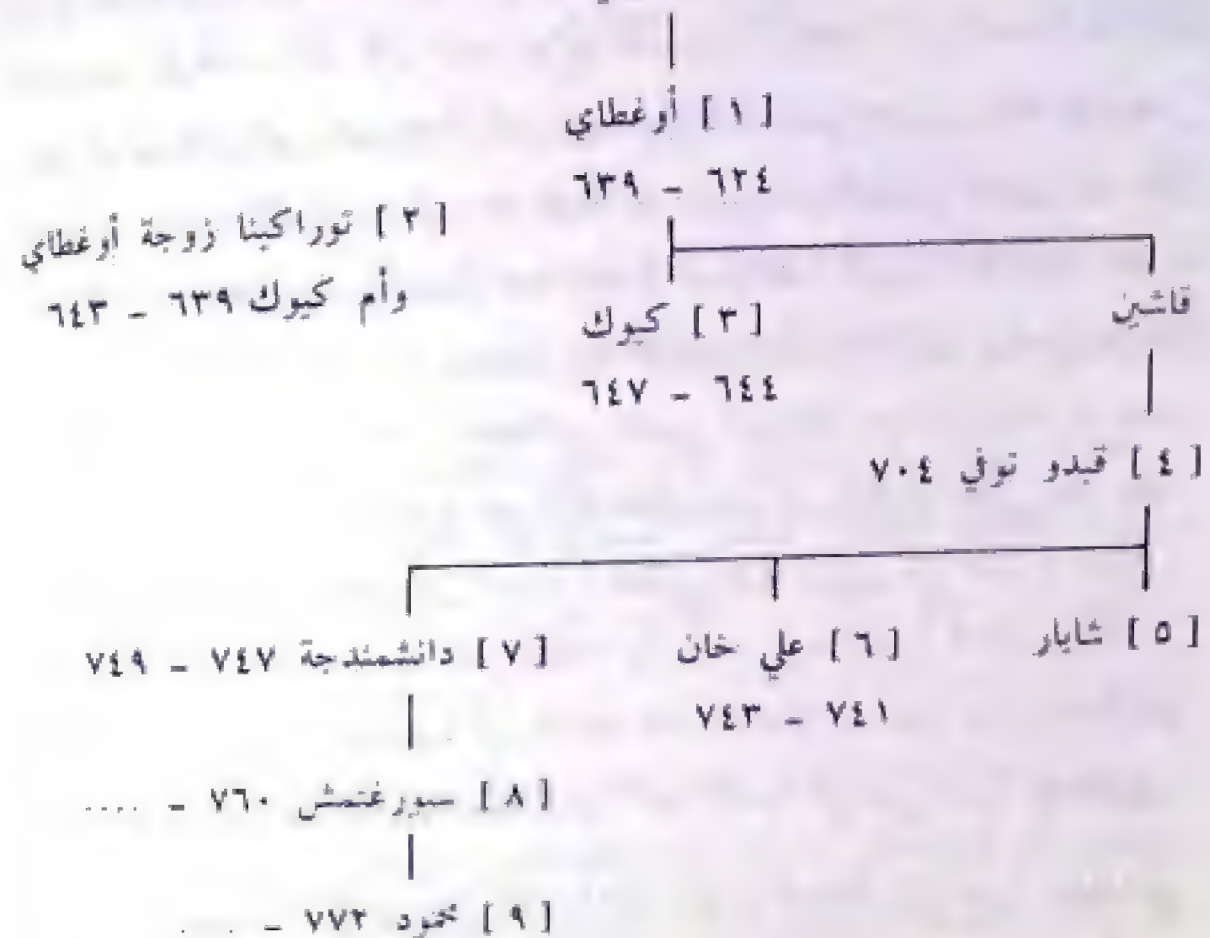 [ ١ ] أوغطاي
٦٢٤ - ٦٣٩
[ ٢ ] توراكينا زوجة أوغطاي
وأم كيوك ٦٣٩ - ٦٤٣
[ ٣ ] كيوك
٦٤٤ - ٦٤٧
قاشين
[ ٤ ] قيدو توفي ٧٠٤
[ ٥ ] شابار
[ ٦ ] علي خان
٧٤١ - ٧٤٣
[ ٧ ] دانشمندجة ٧٤٧ - ٧٤٩
[ ٨ ] سيورغتمش ٧٦٠ - ....
[ ٩ ] محمود ٧٧٢ - ....